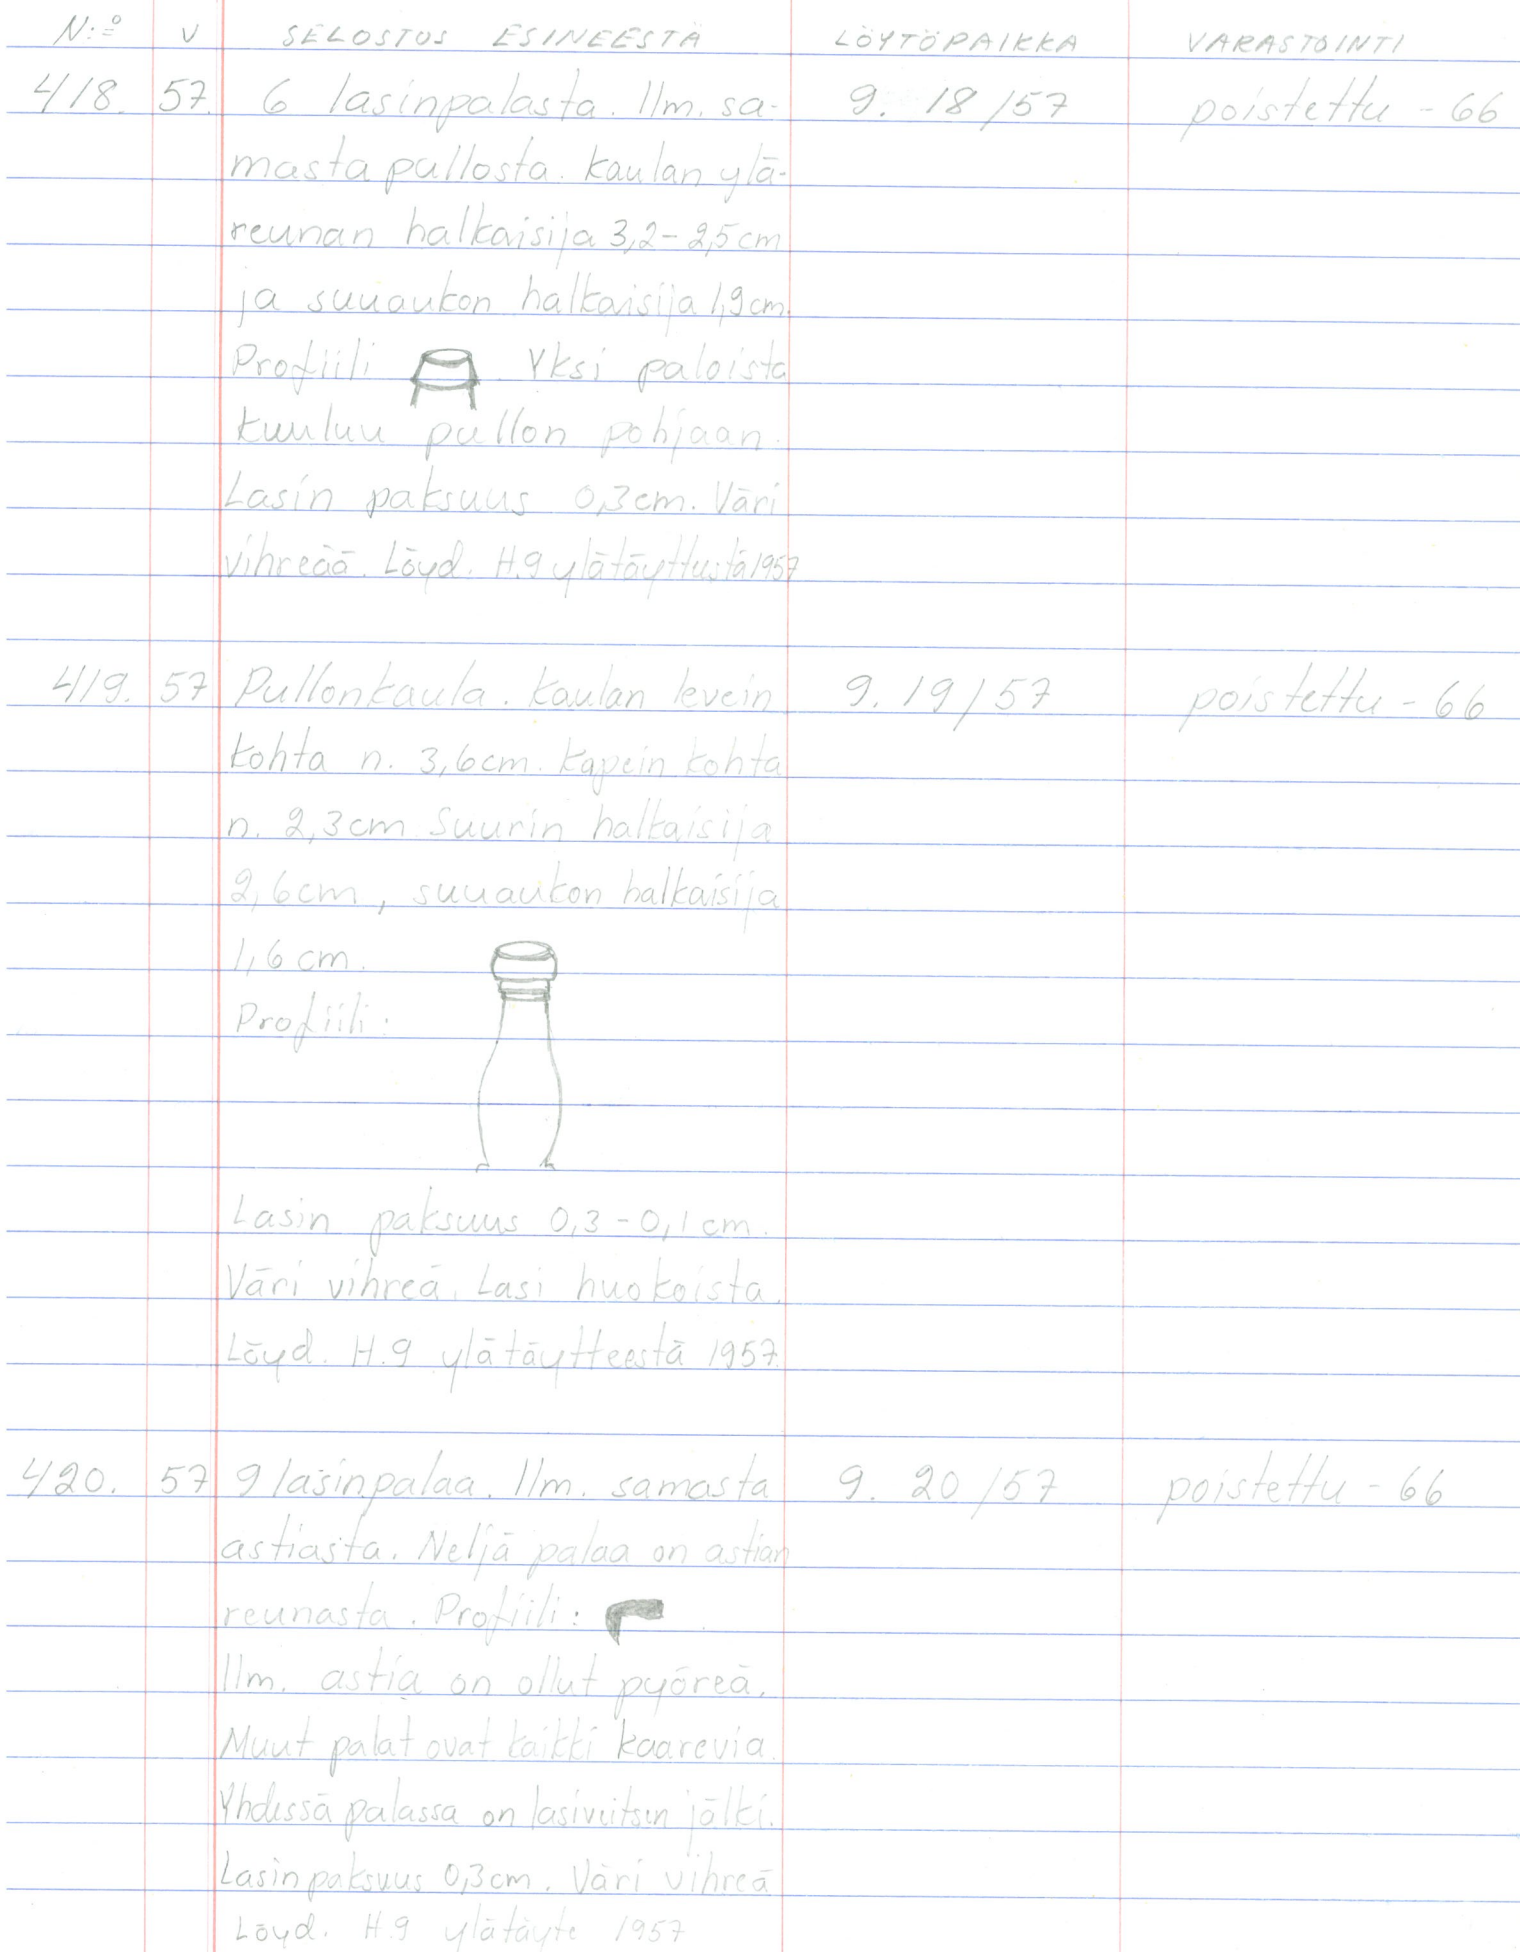 N:o V SELOSTUS ESINEESTÄ LÖYTÖPAIKKA VARASTOINTI
418. 57. 6 lasinpalasta. Ilm. sa- 9. 18/57 poistettu - 66
masta pullosta. Kaulan ylä-
reunan halkaisija 3,2 - 2,5 cm
ja suuaukon halkaisija 1,9 cm.
Profiili . Yksi paloista
kuuluu pullon pohjaan.
Lasin paksuus 0,3 cm. Väri
vihreää. Löyd. H.9 ylätäyttustä 1957
419. 57 Pullonkaula. Kaulan levein 9. 19/57 poistettu - 66
kohta n. 3,6 cm. Kapein kohta
n. 2,3 cm Suurin halkaisija
2,6 cm, suuaukon halkaisija
1,6 cm.
Profiili:
Lasin paksuus 0,3 - 0,1 cm.
Väri vihreä. Lasi huokoista.
Löyd. H.9 ylätäytteestä 1957.
420. 57 9 lasinpalaa. Ilm. samasta 9. 20/57 poistettu - 66
astiasta. Neljä palaa on astian
reunasta. Profiili: .
Ilm. astia on ollut pyöreä.
Muut palat ovat kaikki kaarevia.
Yhdessä palassa on lasiveitsen jälki.
Lasin paksuus 0,3 cm. Väri vihreä
Löyd. H.9 ylätäyte 1957